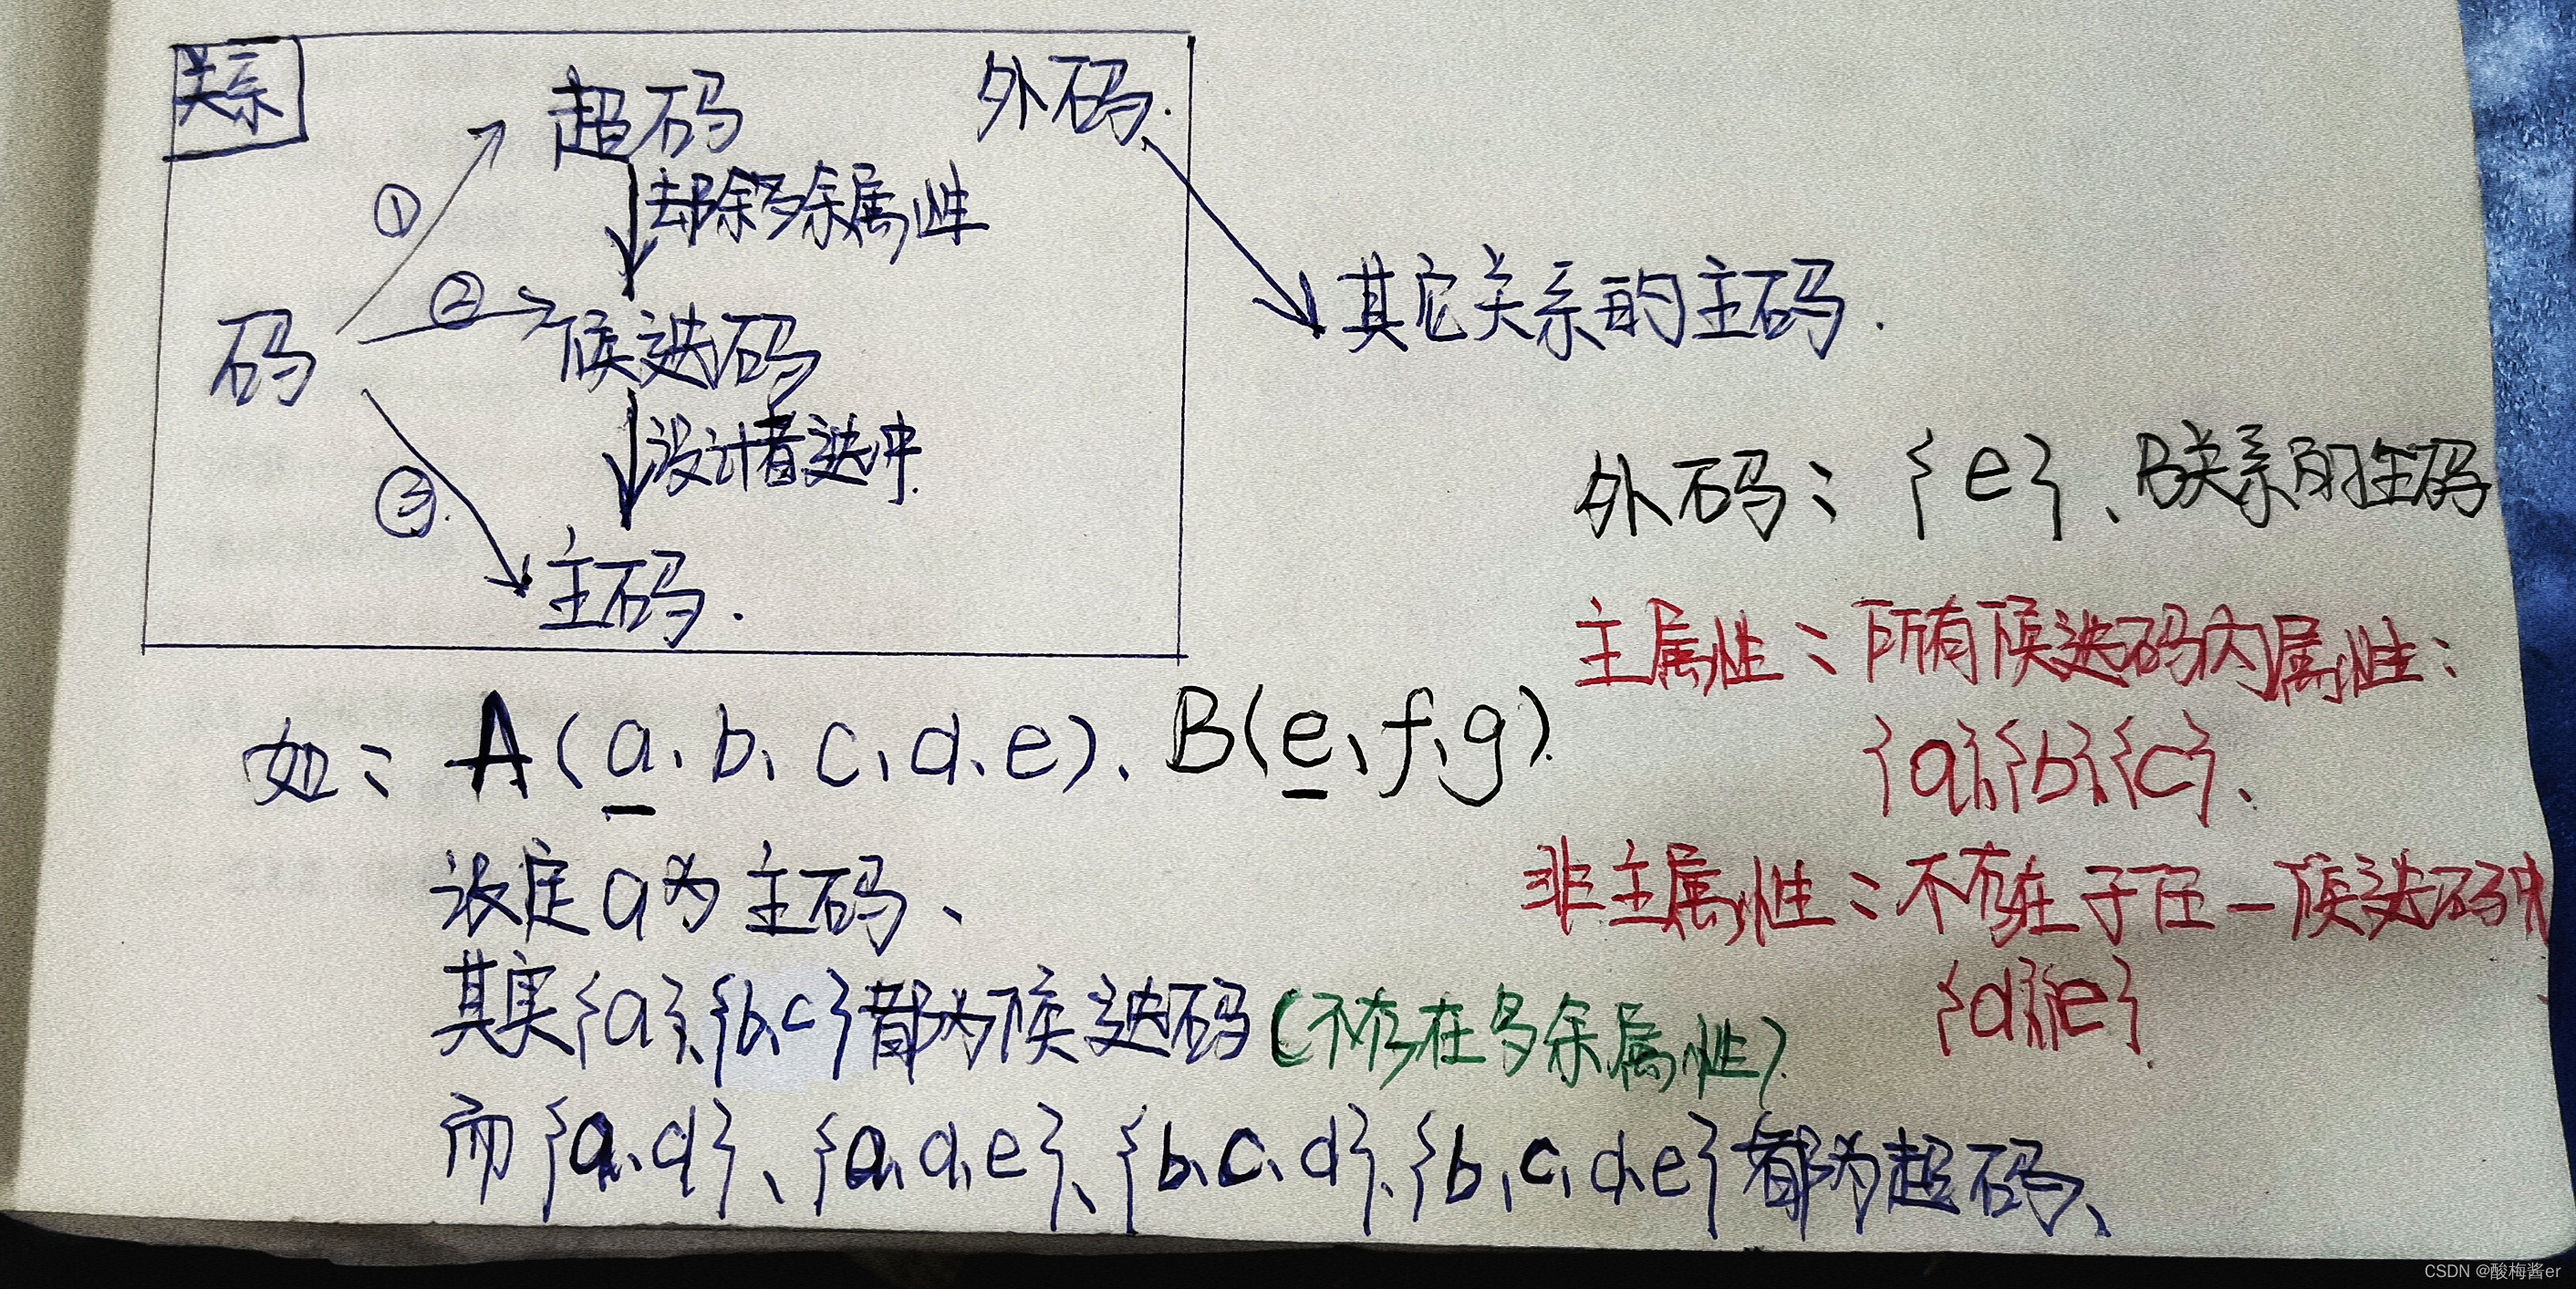 关系
超码
外码.
①
去除多余属性
②
其它关系的主码.
码
候选码
设计者选中.
③
外码: {e}、B关系的主码
主码.
主属性: 所有候选码内属性:
{a}、{b}、{c}、
如: A(a、b、c、d、e)、B(e、f、g).
非主属性: 不存在于任一候选码中
{d}{e}.
设定a为主码、
其实{a}、{b、c}都为候选码(不存在多余属性).
而{a、d}、{a、d、e}、{b、c、d}、{b、c、d、e}都为超码、
CSDN @酸梅酱er